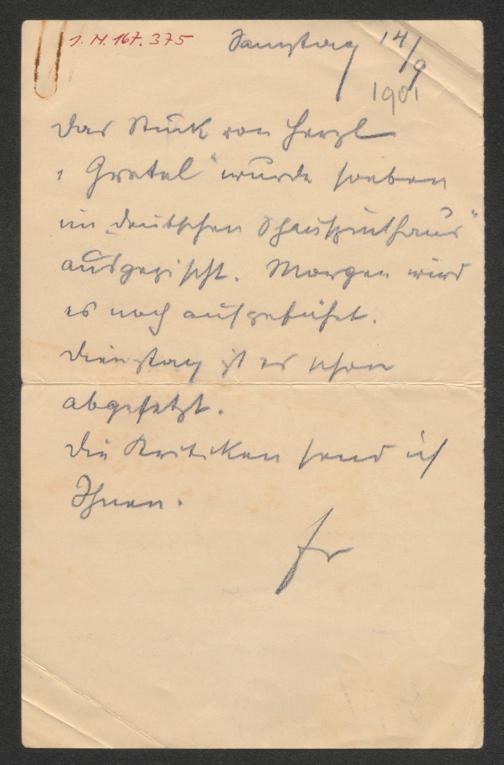 I. N. 167.375
Samstag 14/9
1901
Das Stück von Herzl
„Gretel“ wurde soeben
im „deutschen Schauspielhaus“
ausgezischt. Morgen wird
es noch aufgeführt.
Dienstag ist es schon
abgesetzt.
Die Kritiken send ich
Ihnen.